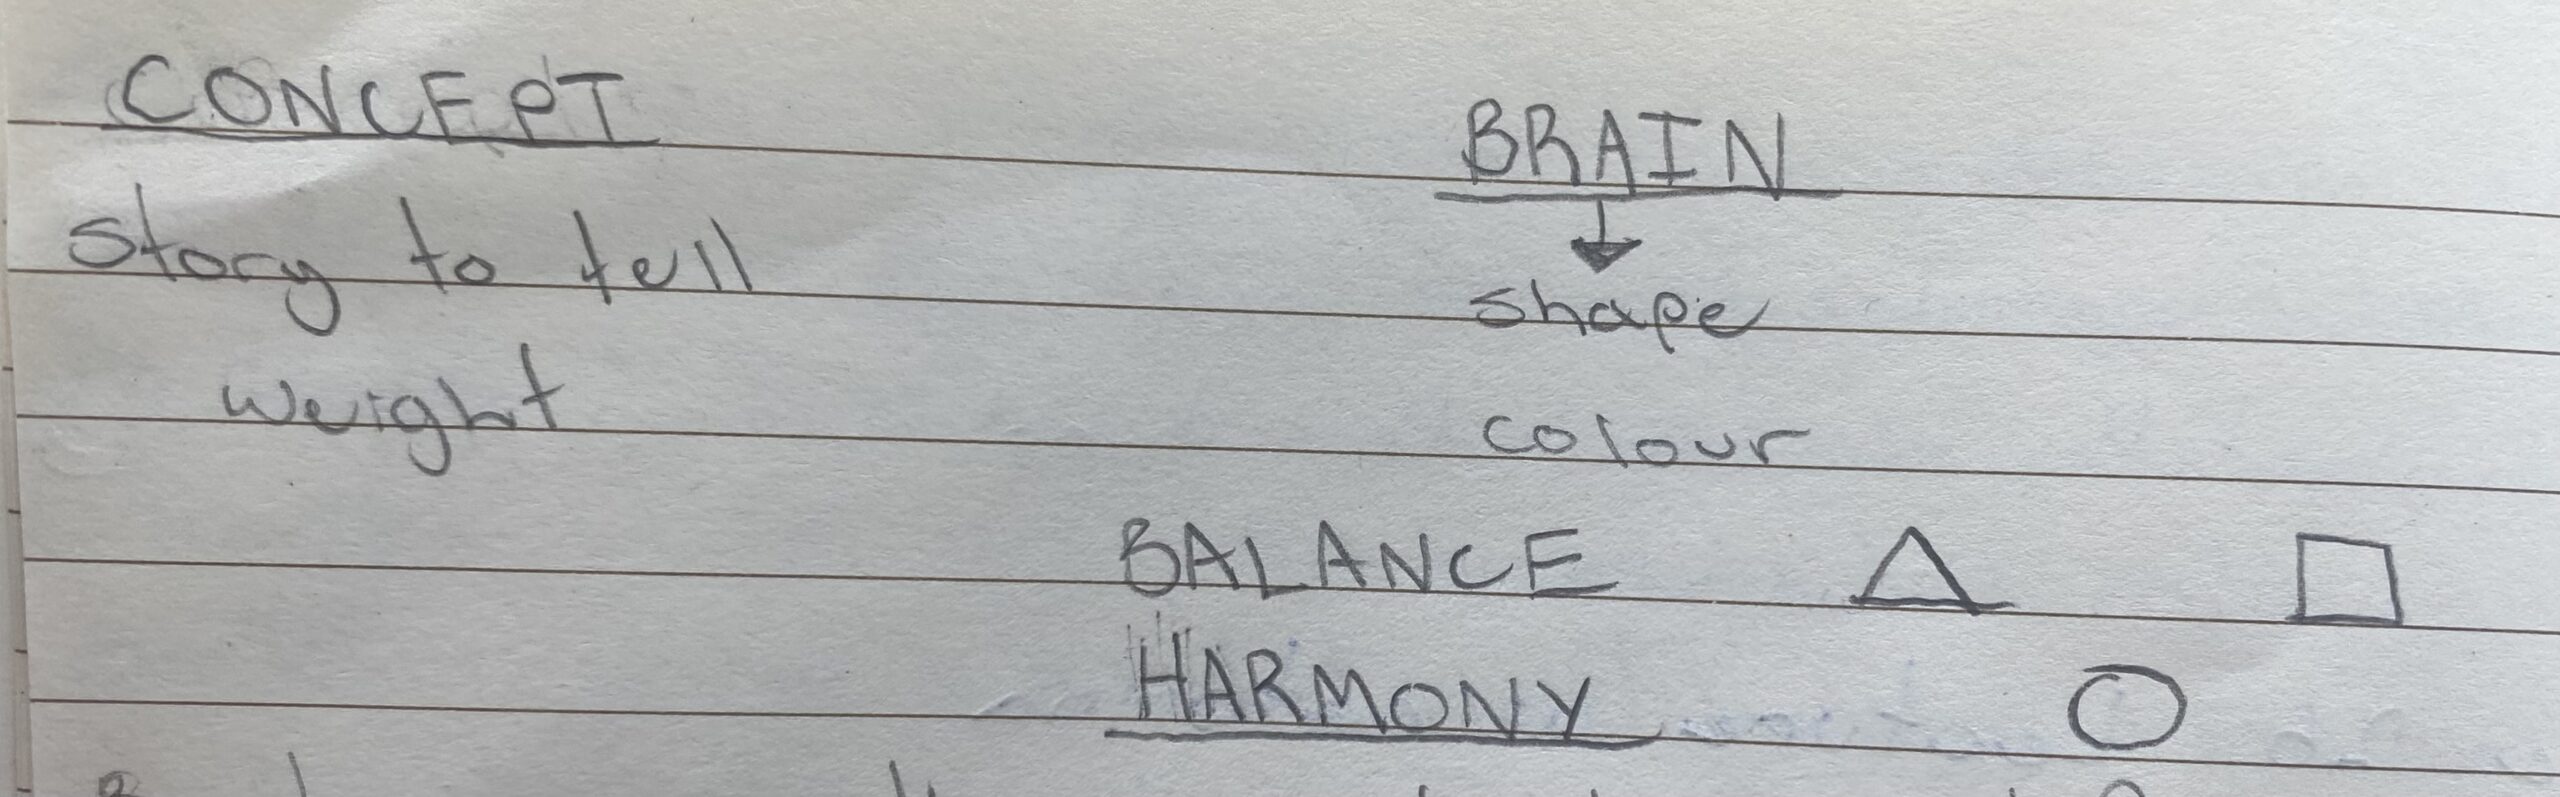 CONCEPT
story to tell
weight
BRAIN
shape
colour
BALANCE
HARMONY